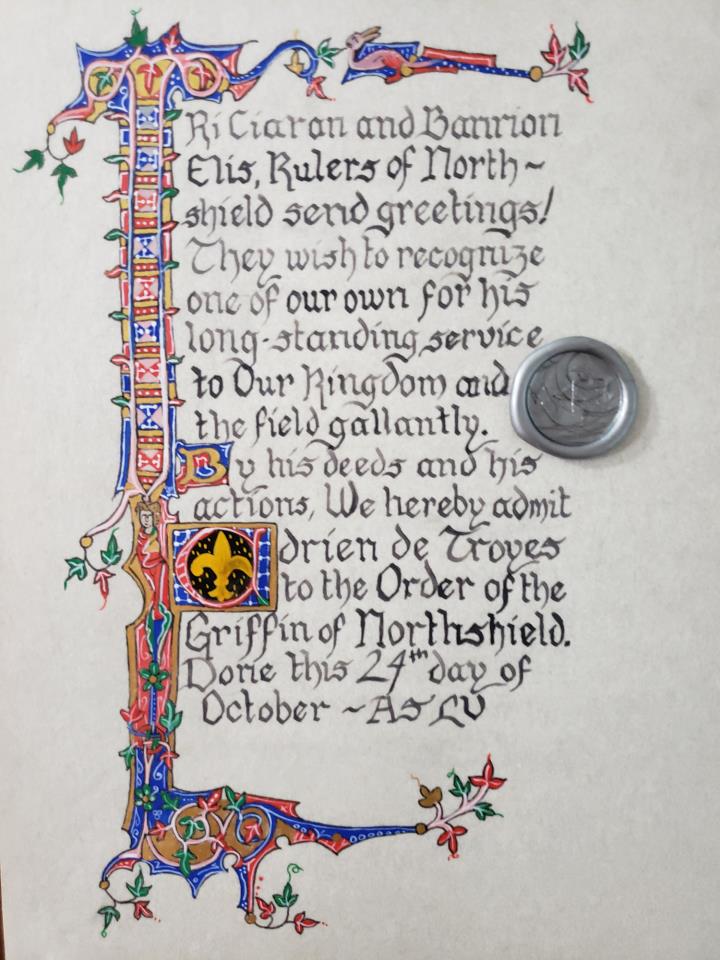 Ri Ciaran and Banrion
Elis, Rulers of North~
shield send greetings!
They wish to recognize
one of our own for his
long-standing service
to Our Kingdom and
the field gallantly.
By his deeds and his
actions, We hereby admit
Adrien de Troyes
to the Order of the
Griffin of Northshield.
Done this 24th day of
October ~ AS LV